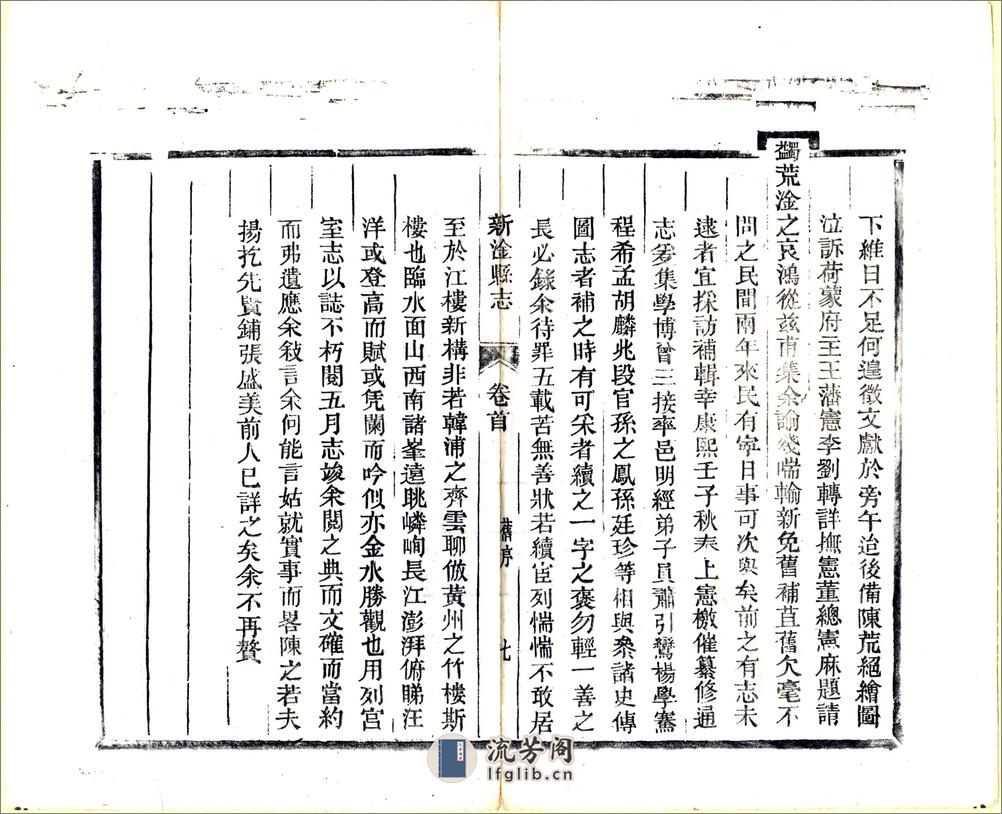 下維日不足何遑徵文獻於旁午迨後備陳荒絕繪圖
泣訴荷蒙府主王藩憲李劉轉詳撫憲董總憲麻題請
蠲荒淦之哀鴻從兹甫集余諭殘喘輸新免舊補苴舊欠毫不
問之民間兩年來民有寧日事可次與矣前之有志未
逮者宜採訪補輯幸康熙壬子秋奉上憲檄催纂修通
志爰集學博曾三接率邑明經弟子員蕭引鸞楊學騫
程希孟胡麟兆段官孫之鳳孫廷珍等相與叅諸史傳
圖志者補之時有可采者續之一字之褒勿輕一善之
長必錄余待罪五載苦無善狀若續宦列惴惴不敢居
新淦縣志 卷首 舊序 七
至於江樓新構非若韓浦之齊雲聊倣黃州之竹樓斯
樓也臨水面山西南諸峯遠眺嶙峋長江澎湃俯睇汪
洋或登高而賦或凭闌而吟似亦金水勝觀也用列宮
室志以誌不朽閱五月志竣余閱之典而文確而當約
而弗遺應余敍言余何能言姑就實事而畧陳之若夫
揚扢先賢鋪張盛美前人已詳之矣余不再贅
流芳阁
lfglib.cn